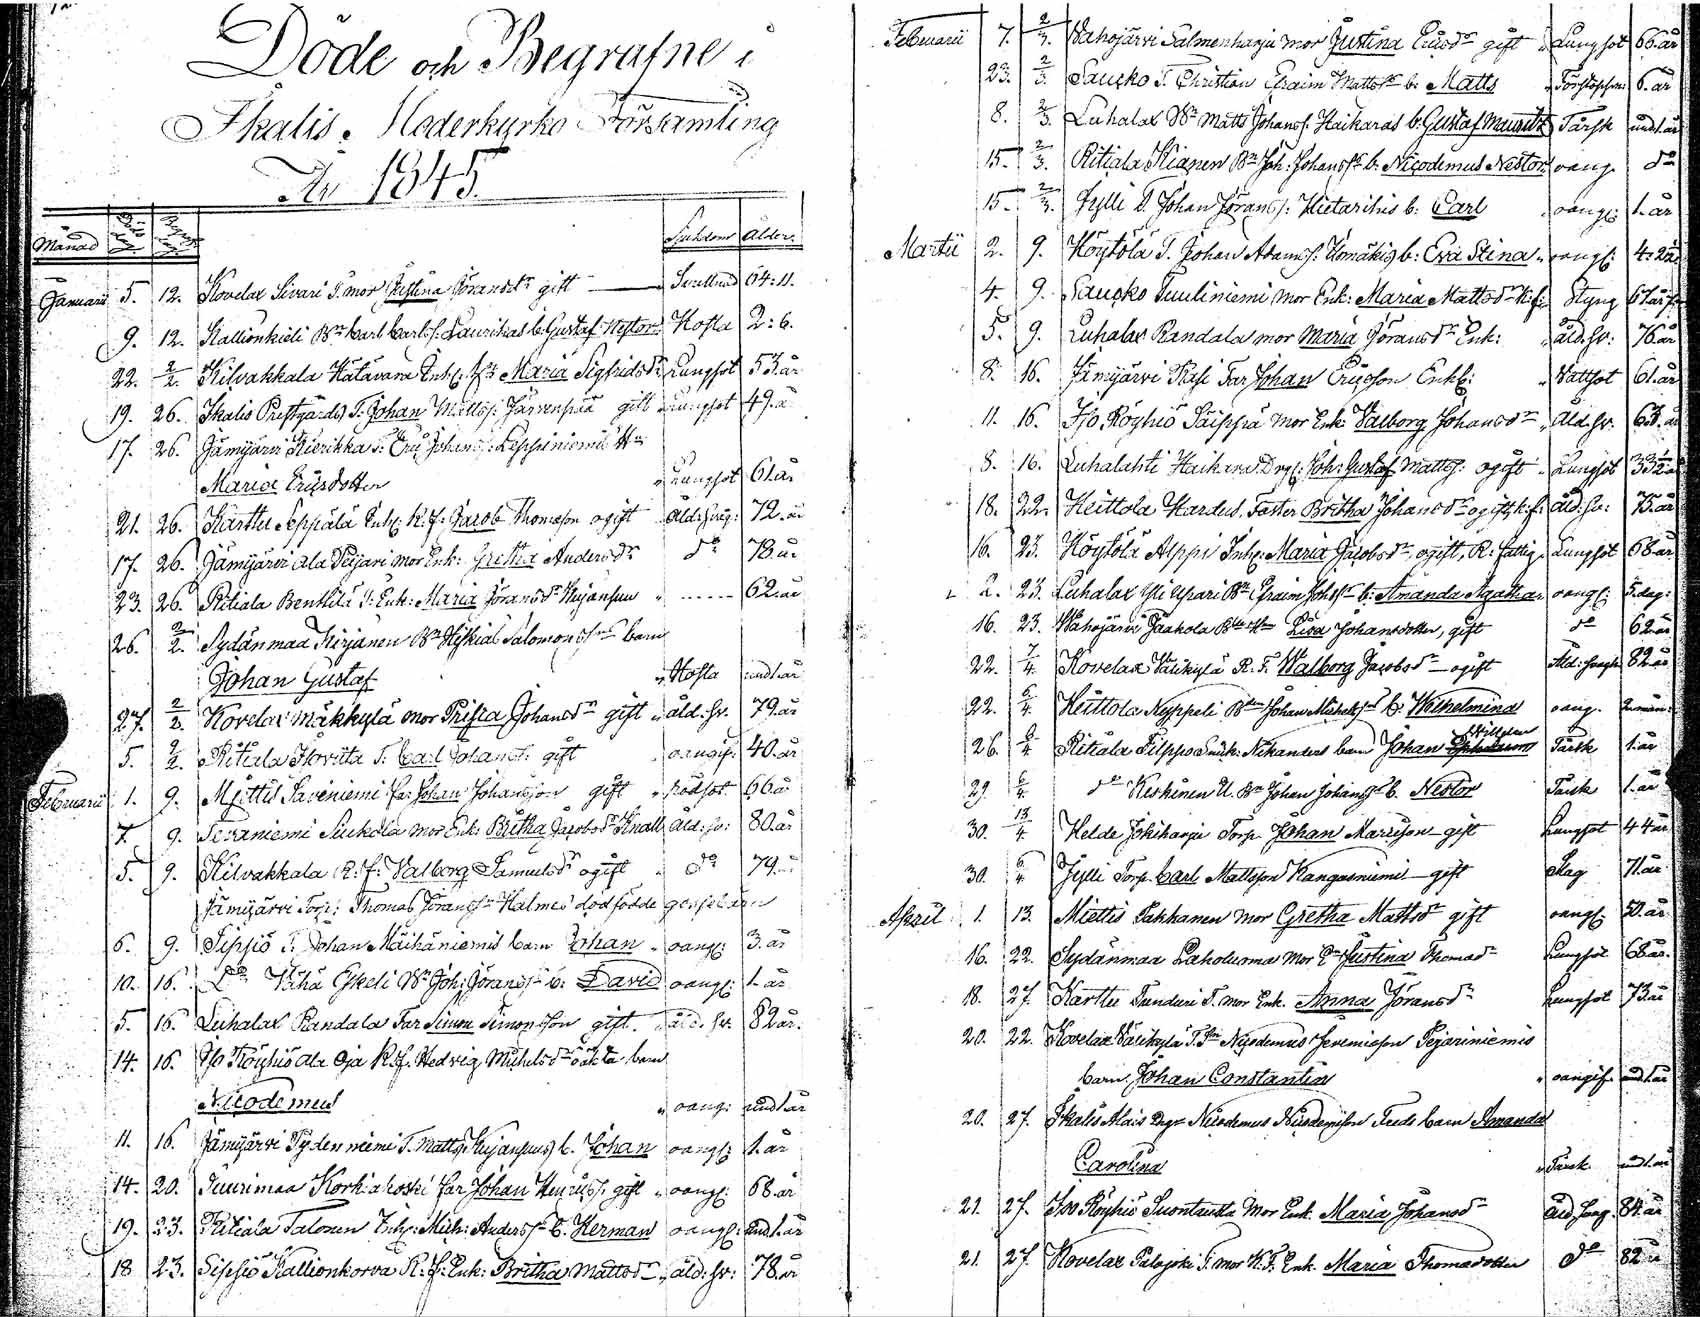 Döde och Begrafne i
Ikalis Moderkyrko Församling
År 1845.
Månad Döds dag Begrafn. dag Sjukdom Ålder.
Januarii 5. 12. Kovelax Sivari T. mor Justina Göransdr gift 64:11.
9. 12. Kallionkieli Bn Carl Carls. Laurikas b. Gustaf Nestor Hosta 2:6.
22. 2/2. Kilvakkala Hätävara Inh. Maria Sigfridsdr Lungsot 53. år
19. 26. Ikalis Prestgårds T. Johan Mattss. Järvenpää gift Lungsot 49. å
17. 26. Jämijärvi Kierikka T. Eric Johans. Leppiniemis H:u
Maria Ericsdotter Lungsot 61. år
21. 26. Karttu Seppälä Inh. R. f. Jacob Thomasson ogift Åld: 72. år
17. 26. Jämijärvi Ala Peijari mor Enk: Gretha Andersdr do 78. år
23. 26. Ritiala Benttilä T. Enk: Maria Göransdr " ------ 62. år
26. 2/2. Sydänmaa Kirjanen Bn Salomonss. barn
Johan Gustaf " Hosta und 1. år
27. 2/2. Kovelax Mäkkylä mor Johansdr gift " åld. sv. 79. år
5. 2/2. Ritiala Hovita T. Carl Johanss. gift oangif. 40. år
Februarii 1. 9. Miettis Saviniemi far Johan Johansson gift " rödsot 66 å
7. 9. Sevaniemi mor Enk: Britha Jacobsdr åld: sv: 80. år
5. 9. Kilvakkala R: f: Valborg Samuelsdr ogift " do 79. år
Jämijärvi Torp: Thomas Göranss. Halmes dödfödde gossebarn
6. 9. Sipsiö T. Johan Mäihäniemis barn Johan " oang: 3. år
10. 16. Do Vähä Eskeli Bn Joh: Görans. b: David oang: 1. år
5. 16. Luhalax Randala Far Simon Simonsson gift " åld. sv. 82 år.
14. 16. Iso Röyhiö Ala Oja R. f. Hedvig Michelsdr oäkta barn
Nicodemus " oang: und 1. år
11. 16. Jämijärvi Sydenniemi T. Matts b. Johan oang: 1. år
14. 20. Juurimaa Korkiakoski far Johan Henricss. gift " oang: 68. år
19. 23. Ritiala Talonen Inh: Mich: Anderss. b. Herman oang: und 1. år
18 23. Sipsiö Kallionkorva R: f: Enk: Britha Mattsdr " åld: sv: 78. år
Februarii 7. 2/3. Vahojärvi Salmenharju mor Justina Ericsdr gift " Lungsot 66. år
23. 2/3. Saucko T. Christian Efraim Mattss. b. Matts " 6. år
8. 2/3. Luhalax Bn Matts Johans. Haikaras b: Gustaf Mauritz Tärsk und 1. år
15. 2/3. Ritiala Kianen Bn Joh: Johanss. b: Nicodemus Nestor oang. do
15. 2/3. Jylli T. Johan Görans. Hietarihis b: Carl " oang: 1. år
Martii 2. 9. Höytölä T. Johan Adams. Homäkis b: Eva Stina " oang: 4:
4. 9. Saucko Tuuliniemi mor Enk: Maria Mattsdr " Styng 67. år
5. 9. Luhalax Randala mor Maria Göransdr Enk: " åld. sv: 76. år
8. 16. Jämijärvi Pasi Far Johan Ericsson Enkl: " Vattsot 61. år
11. 16. Iso Röyhiö Säippä mor Enk: Valborg Johansdr " Åld. sv. 63. år
8. 16. Luhalahti Haikara Drg: Joh: Gustaf Mattss. ogift " Lungsot
18. 22. Heittola Hardus. Faster Britha Johansdr ogift, R: f: åld: sv: 75. år
16. 23. Höytölä Alppi Inh: Maria Jacobsdr ogift, R: fattig " Lungsot 68. år
2. 23. Luhalax Yli Ypari Bn Efraim b: Amanda Agatha oang: 5. dag:
16. 23. Vahojärvi Jaakola Bn Lisa Johansdotter, gift do 62. år
22. 7/4. Kovelax Välikylä R. f. Walborg Jacobsdr ogift Åld: 82. år
22. 6/4. Heittola Nyppeli Bn Johan Michels b: Wilhelmina oang. 2. mån:
26. 6/4. Ritiala Filppo Nikanders barn Johan Tärsk 1. år
29. 6/4. do Keskinen U. Bn Johan Johanss. b. Nestor Tärsk 1. år
30. 13/4. Helde Jokiharju Torp. Johan Maricson gift Lungsot 44 år
30. 6/4. Jylli Torp. Carl Mattsson Kangasniemi gift Slag 71. år
April 1. 13. Miettis Pakkanen mor Gretha Mattsdr gift oang: 50. år
16. 22. Sydänmaa Laholuoma mor Justina Thomasdr Lungsot 68 år.
18. 27. Karttu Tunduri T. mor Enk. Anna Göransdr Lungsot 73. år
20. 22. Kovelax Välikylä T. Nicodemus Jeremiasson Pejariniemis
barn Johan Constantin " oangif. und 1. år
20. 27. Ikalis Alais Nicodemus Nicodemisson Freds barn Amanda
Carolina " Tärsk und 1. år
21. 27. Iso Röyhiö Suontausta mor Enk. Maria Johansdr Åld. 84. år
21. 27. Kovelax Palojoki T. mor R. f. Enk. Maria Thomasdotter do 82. å